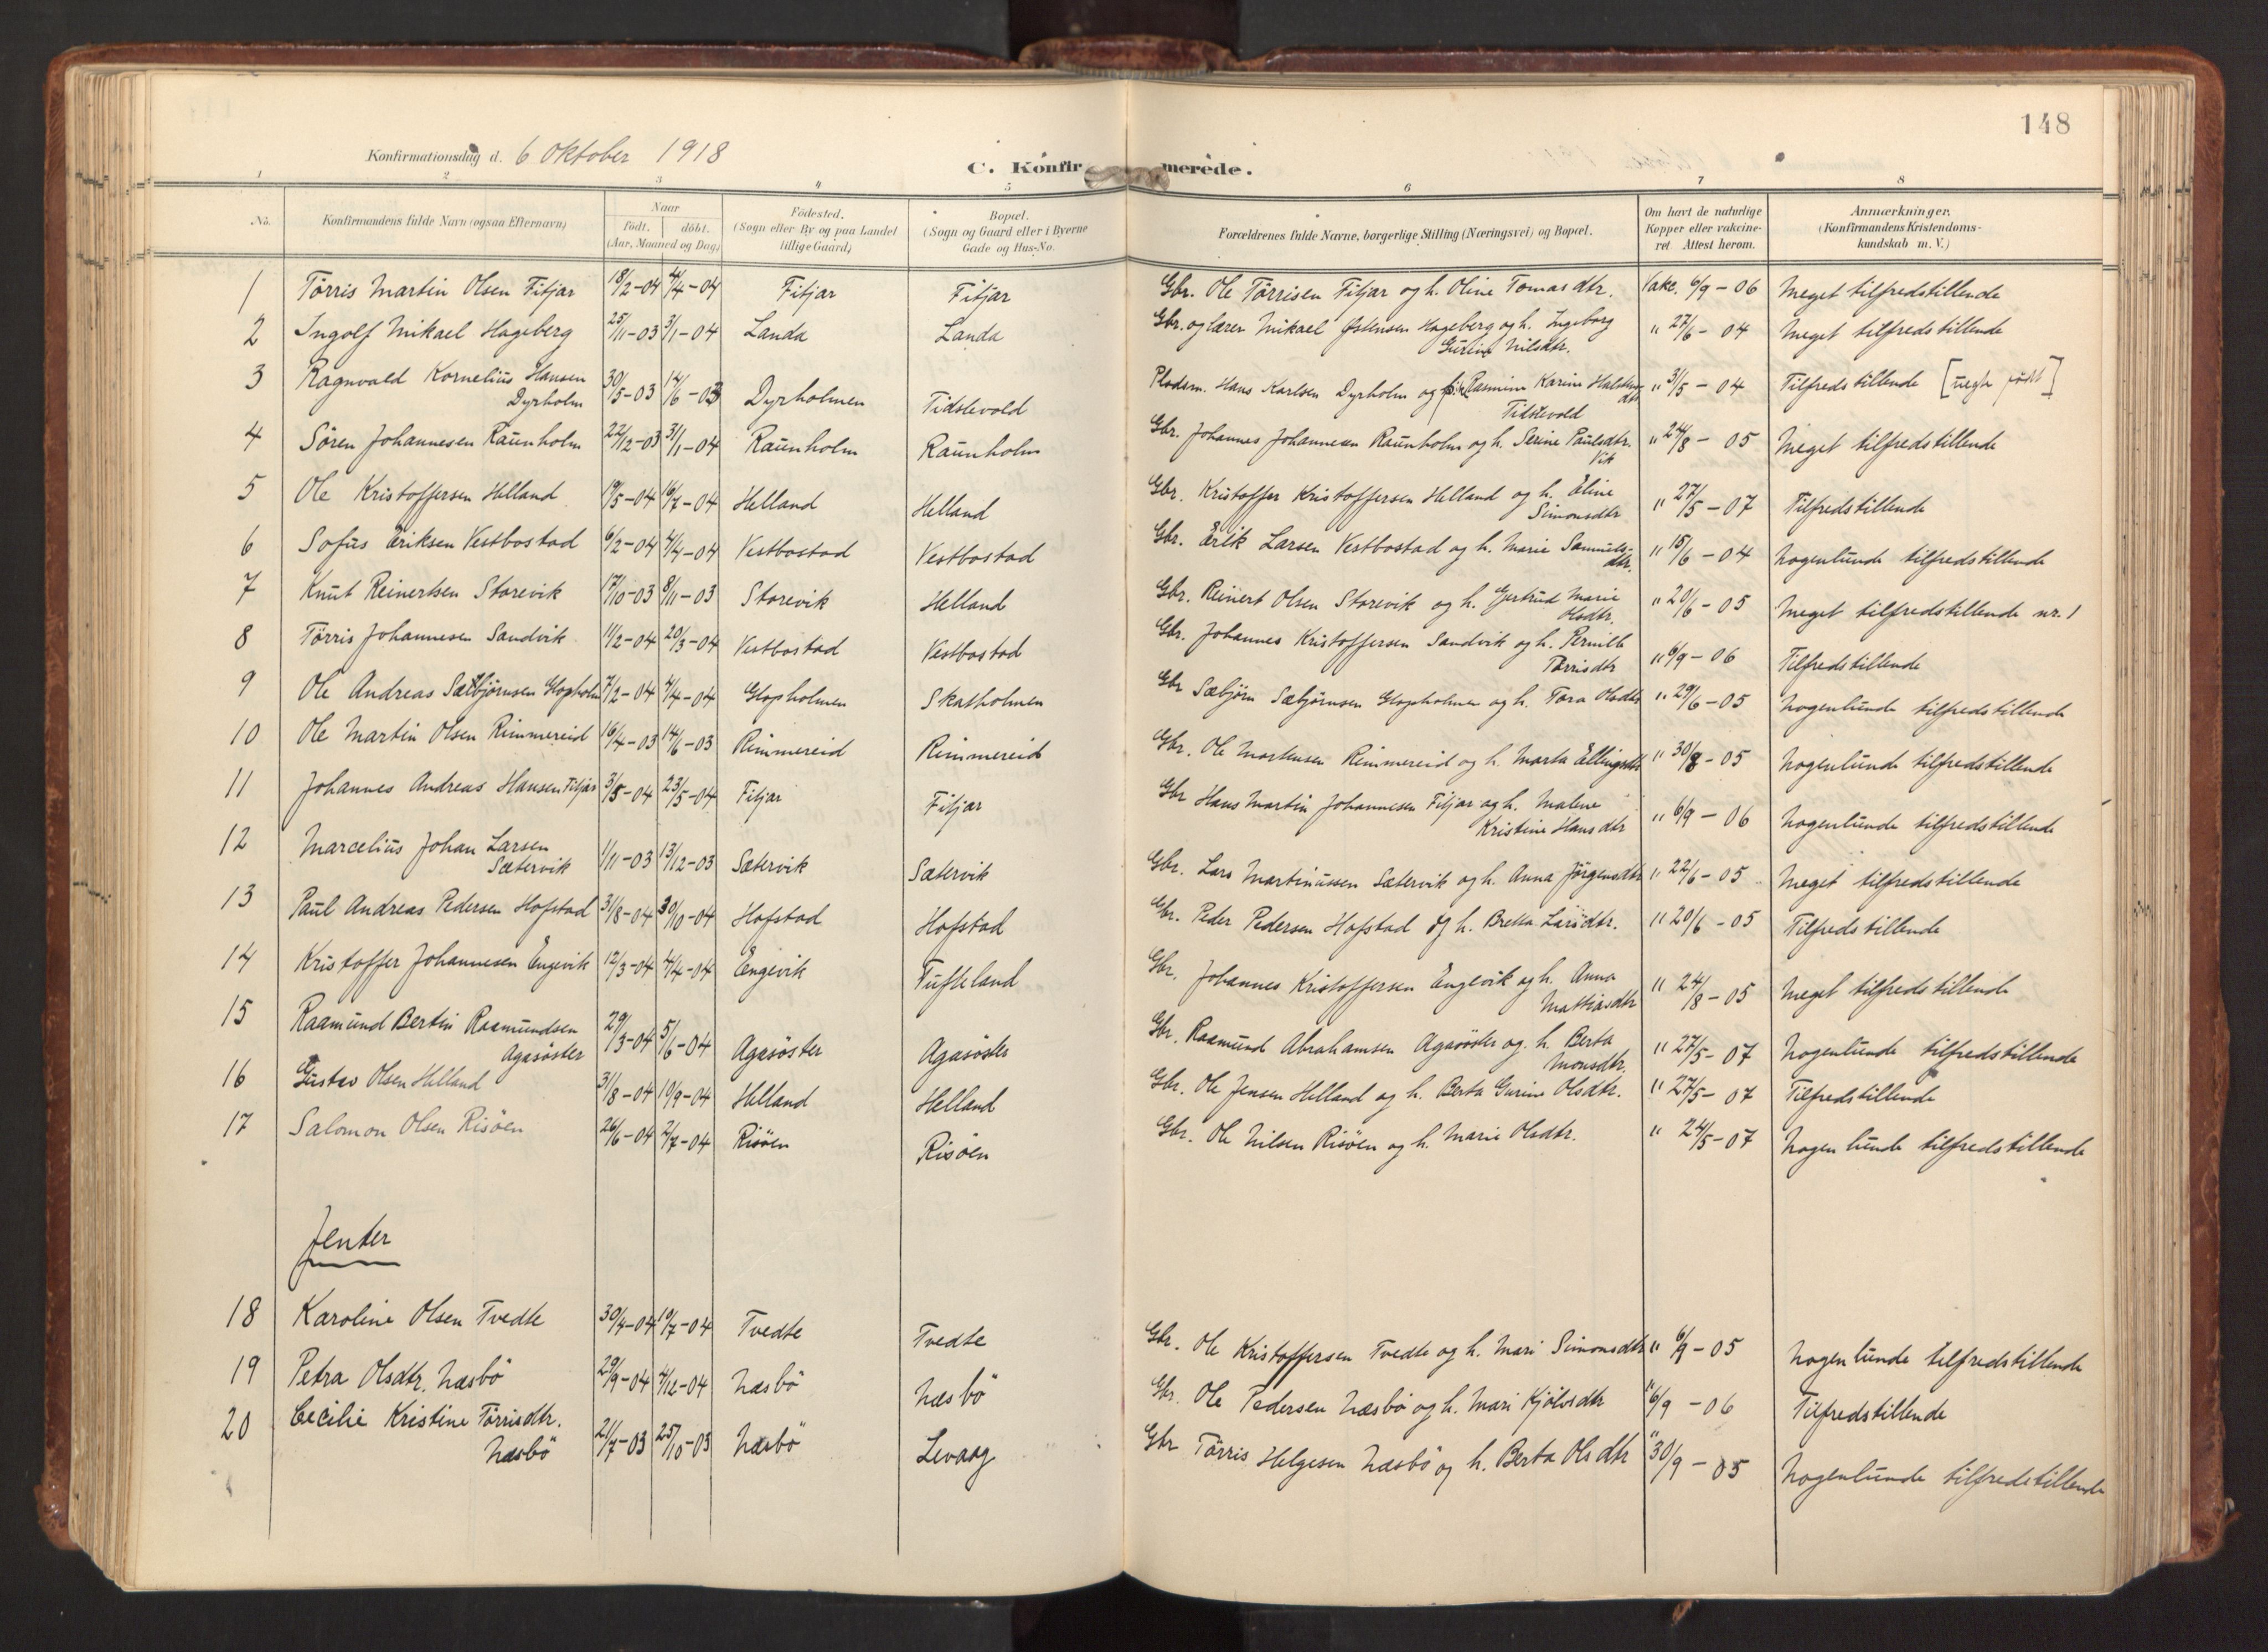 148
Konfirmationsdag d. 6 Oktober 1918
C. Konfirmerede.
1 2 3 4 5 6 7 8
No. Konfirmandens fulde Navn (ogsaa Efternavn) Naar født. døbt. (Aar, Maaned og Dag) Fødested. (Sogn eller By og paa Landet tillige Gaard) Bopæl. (Sogn og Gaard eller i Byerne Gade og Hus-No. Forældrenes fulde Navne, borgerlige Stilling (Næringsvei) og Bopæl. Om havt de naturlige Kopper eller vakcineret Attest herom. Anmærkninger. (Konfirmandens Kristendomskundskab m. V.)
1 Törris Martin Olsen Fitjar 18/2-04 4/4-04 Fitjar Fitjar Gbr. Ole Törrisen Fitjar og h. Oline Tomasdtr. Vakc. 6/9-06 Meget tilfredstillende
2 Ingolf Mikael Hageberg 25/11-03 3/1-04 Landa Landa Gbr. og lærer Mikael Østensen Hageberg og h. Ingeborg " 27/6-04 Meget tilfredstillende
Gurine Nilsdtr.
3 Ragnvald Kornelius Hansen 30/5-03 14/6-03 Dyrholmen Tidslevold Pladsm. Hans Karlsen Dyrholm og Rasmine Karine " 31/5-04 Tilfredstillende
Dyrholm Tidslevold
4 Sören Johannesen Raunholm 22/12-03 31/1-04 Raunholm Raunholm Gbr. Johannes Johannesen Raunholm og h. Serine Paulsdtr. " 24/8-05 Meget tilfredstillende
Vik
5 Ole Kristoffersen Helland 19/5-04 16/7-04 Helland Helland Gbr. Kristoffer Kristoffersen Helland og h. Eline " 27/5-07 Tilfredstillende
Simonsdtr
6 Sofus Eriksen Vestbostad 6/2-04 4/4-04 Vestbostad Vestbostad Gbr. Erik Larsen Vestbostad og h. Marie Samuels- " 15/6-04 Nogenlunde tilfredstillende
dtr.
7 Knut Reinertsen Storevik 17/10-03 8/11-03 Storevik Helland Gbr. Reinert Olsen Storevik og h. Gertrud Marie " 20/6-05 Meget tilfredstillende nr. 1
Olsdtr.
8 Törris Johannesen Sandvik 11/2-04 20/3-04 Vestbostad Vestbostad Gbr. Johannes Kristoffersen Sandvik og h. Pernille " 6/9-06 Tilfredstillende
Törrisdtr
9 Ole Andreas Sæbjørnsen Glopholm 7/2-04 4/4-04 Glopholmen Skatholmen Gbr Sæbjörn Sæbjörnsen Glopholmen og h. Tora Olsdtr " 29/6-05 Nogenlunde tilfredstillende
10 Ole Martin Olsen Rimmereid 16/4-03 14/6-03 Rimmereid Rimmereid Gbr. Ole Mortensen Rimmereid og h. Marta Ellingsdtr " 30/8-05 Nogenlunde tilfredstillende
11 Johannes Andreas Hansen Fitjar 3/5-04 23/5-04 Fitjar Fitjar Gbr Hans Martin Johannesen Fitjar og h. Malene " 6/9-06 Nogenlunde tilfredstillende
Kristine Hansdtr
12 Marcelius Johan Larsen 1/11-03 13/12-03 Sætervik Sætervik Gbr. Lars Martinussen Sætervik og h. Anna Jörgensdtr " 22/6-05 Meget tilfredstillende
Sætervik
13 Paul Andreas Pedersen Hofstad 31/8-04 30/10-04 Hofstad Hofstad Gbr. Peder Pedersen Hofstad og h. Bretta Larsdtr. " 20/6-05 Tilfredstillende
14 Kristoffer Johannesen Engevik 12/3-04 4/4-04 Engevik Tufteland Gbr. Johannes Kristoffersen Engevik og h. Anna " 24/8-05 Meget tilfredstillende
Mattiasdtr
15 Raamund Bertin Raamundsen 29/3-04 5/6-04 Agasöster Agasöster Gbr. Raamund Abrahamsen Agasöster og h. Berta " 27/5-07 Nogenlunde tilfredstillende
Agasöster Monsdtr.
16 Gustav Olsen Helland 31/8-04 10/9-04 Helland Helland Gbr. Ole Jensen Helland og h. Berta Gurine Olsdtr. " 27/5-07 Tilfredstillende
17 Salomon Olsen Risöen 26/6-04 2/7-04 Risöen Risöen Gbr. Ole Nilsen Risöen og h. Marie Olsdtr. " 24/5-07 Nogenlunde tilfredstillende
Jenter
18 Karoline Olsen Tvedte 30/4-04 10/7-04 Tvedte Tvedte Gbr. Ole Kristoffersen Tvedte og h. Mari Simonsdtr " 6/9-05 Nogenlunde tilfredstillende
19 Petra Olsdtr. Næsbö 29/9-04 4/12-04 Næsbö Næsbö Gbr. Ole Pedersen Næsbö og h. Mari Kjölvsdtr " 6/9-06 Tilfredstillende
20 Cecilie Kristine Törrisdtr. 21/7-03 25/10-03 Næsbö Levaag Gbr Törris Helgesen Næsbö og h. Berta Olsdtr " 30/9-05 Nogenlunde tilfredstillende
Næsbö